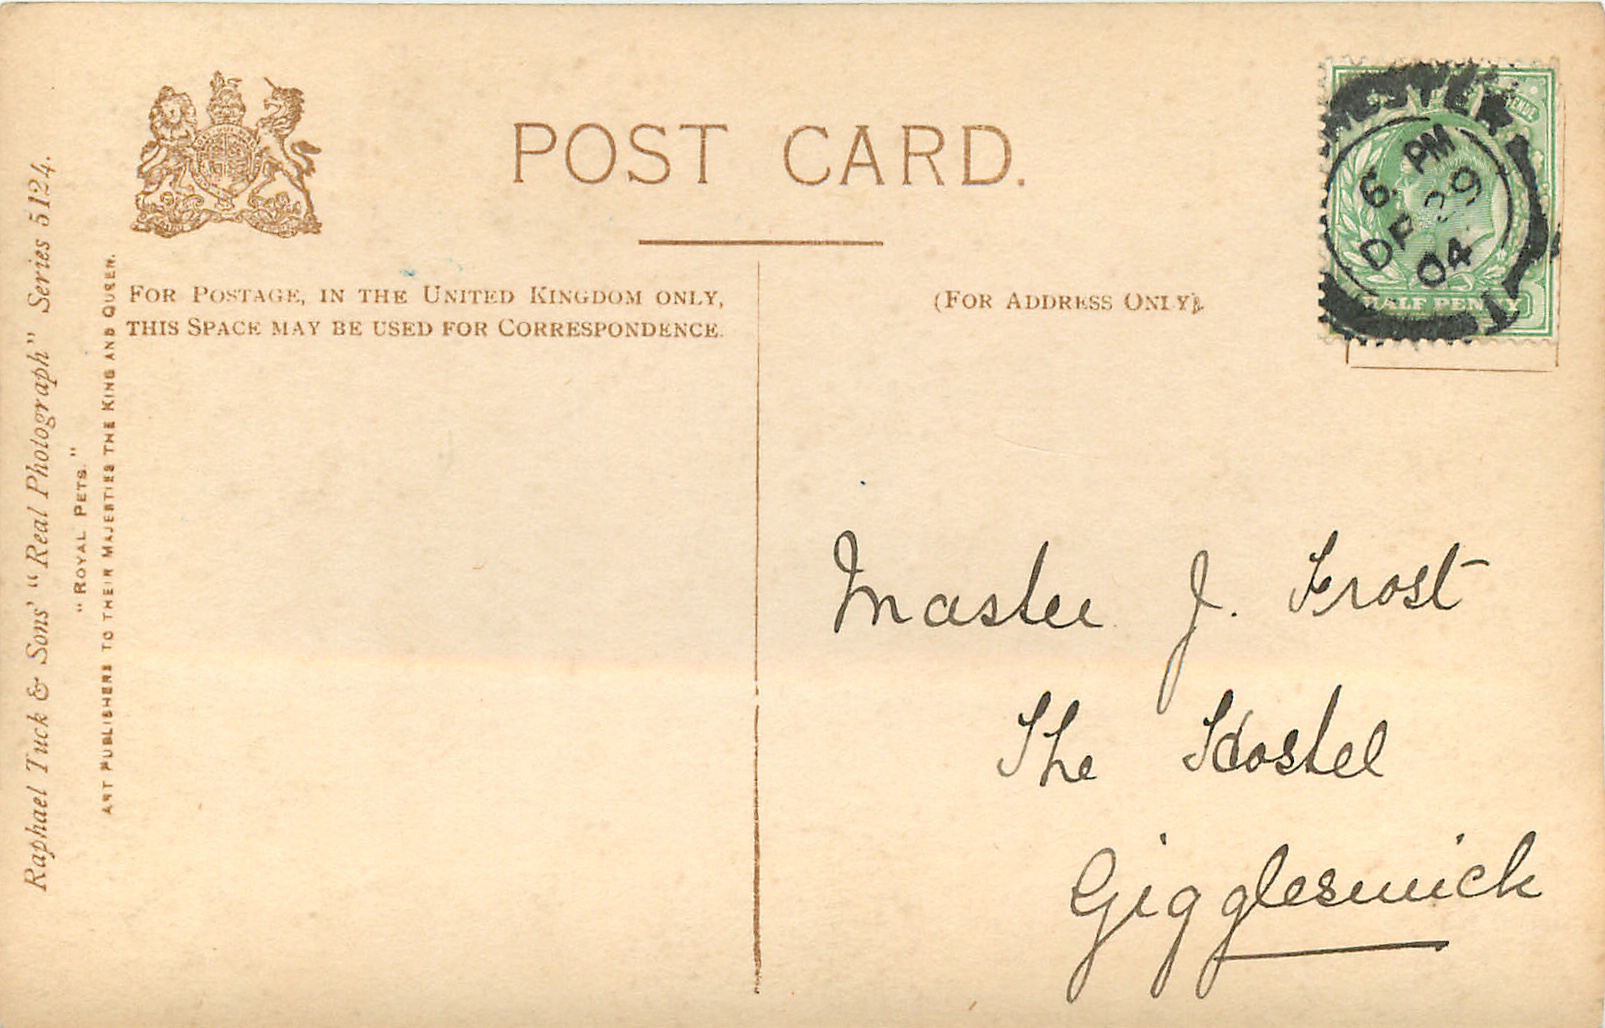 POST CARD.
FOR POSTAGE, IN THE UNITED KINGDOM ONLY,
THIS SPACE MAY BE USED FOR CORRESPONDENCE.
(FOR ADDRESS ONLY).
Raphael Tuck & Sons' "Real Photograph" Series 5124.
"ROYAL PETS."
ART PUBLISHERS TO THEIR MAJESTIES THE KING AND QUEEN.
6. PM
DE 29
04
HALF PENNY
Master J. Frost
The Hostel
Giggleswick